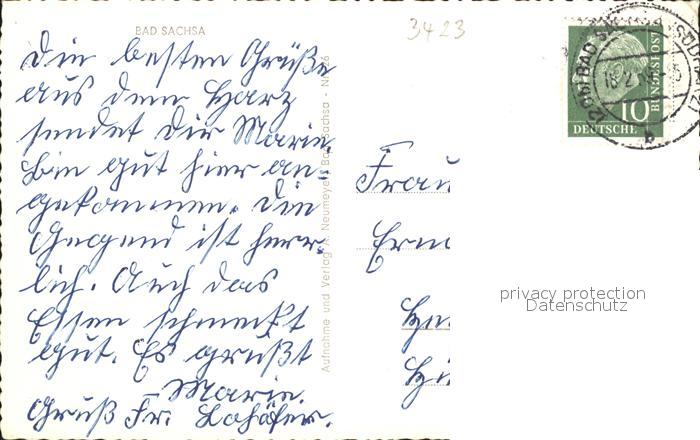 BAD SACHSA
3423
Die besten Grüße
aus dem Harz
sendet Dir Marie.
Bin gut hier an-
gekommen. Die
Gegend ist herr-
lich. Auch das
Essen schmeckt
gut. Es grüßt
Marie.
Gruß Fr. Lohöfer.
Aufnahme und Verlag A. Neumeyer, Bad Sachsa - Nr.
Frau
DEUTSCHE
BUNDESPOST
10
BAD SACHSA
(SÜDHARZ)
b
privacy protection
Datenschutz